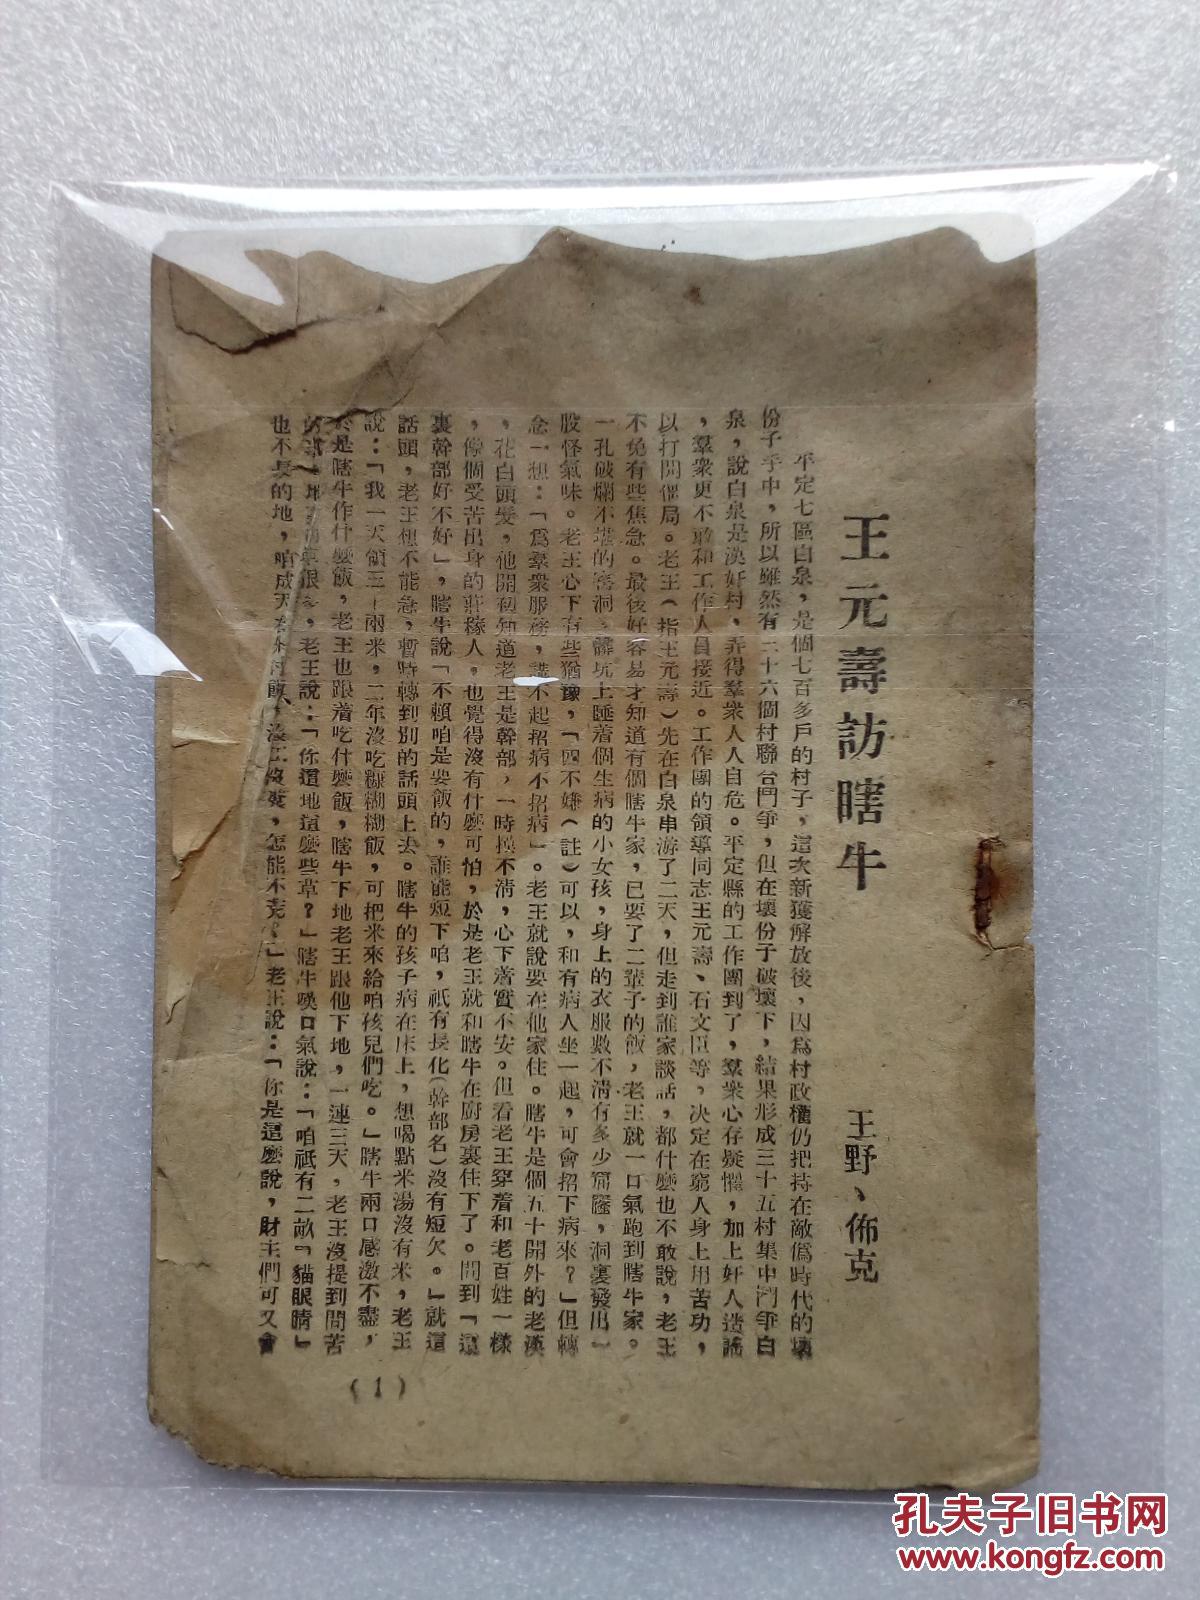 王元壽訪瞎牛
王野、佈克
平定七區白泉，是個七百多戶的村子，這次新獲解放後，因為村政權仍把持在敵僞時代的壞
份子手中，所以雖然有二十六個村聯合鬥爭，但在壞份子破壞下，結果形成三十五村集中鬥爭白
泉，說白泉是漢奸村，弄得羣衆人人自危。平定縣的工作團到了，羣衆心存疑懼，加上奸人造謠
，羣衆更不敢和工作人員接近。工作團的領導同志王元壽、石文臣等，決定在窮人身上用苦功，
以打開僵局。老王（指王元壽）先在白泉串游了二天，但走到誰家談話，都什麼也不敢說，老王
不免有些焦急。最後好容易才知道有個瞎牛家，已要了二輩子的飯，老王就一口氣跑到瞎牛家。
一孔破爛不堪的窰洞，髒炕上睡着個生病的小女孩，身上的衣服數不清有多少窟窿，洞裏發出一
股怪氣味。老王心下有些猶豫，「四不嫌（註）可以，和有病人坐一起，可會招下病來？」但轉
念一想：「為羣衆服務，說不起招病不招病」。老王就說要在他家住。瞎牛是個五十開外的老漢
，花白頭髮，他開初知道老王是幹部，一時摸不清，心下着實不安。但看老王穿着和老百姓一樣
，像個受苦出身的莊稼人，也覺得沒有什麼可怕，於是老王就和瞎牛在厨房裏住下了。問到「這
裏幹部好不好」，瞎牛說「不賴咱是要飯的，誰能短下咱，祇有長化（幹部名）沒有短欠。」就這
話頭，老王想不能急，暫時轉到別的話頭上去。瞎牛的孩子病在床上，想喝點米湯沒有米，老王
說：「我一天領三十兩米，二年沒吃糠糊糊飯，可把米來給咱孩兒們吃。」瞎牛兩口感激不盡，
於是瞎牛作什麼飯，老王也跟着吃什麼飯，瞎牛下地老王跟他下地，一連三天，老王沒提到問苦
很多，老王說：「你這地這麼些草？」瞎牛嘆口氣說：「咱祇有二畝『貓眼睛』
也不長的地，咱成天飯，沒工沒糞，怎能不荒？」老王說：「你是這麼說，財主們可又會
（1）
孔夫子旧书网
www.kongfz.com